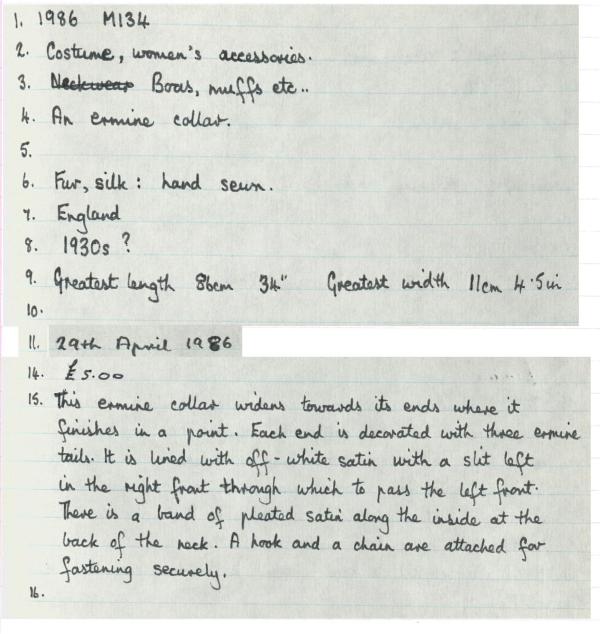 1. 1986 M134
2. Costume, women's accessories.
3. Neckwear Boas, muffs etc..
4. An ermine collar.
5.
6. Fur, silk : hand sewn.
7. England
8. 1930s ?
9. Greatest length 86cm 34" Greatest width 11cm 4.5in
10.
11. 29th April 1986
14. £5.00
15. This ermine collar widens towards its ends where it
finishes in a point. Each end is decorated with three ermine
tails. It is lined with off-white satin with a slit left
in the right front through which to pass the left front.
There is a band of pleated satin along the inside at the
back of the neck. A hook and a chain are attached for
fastening securely.
16.